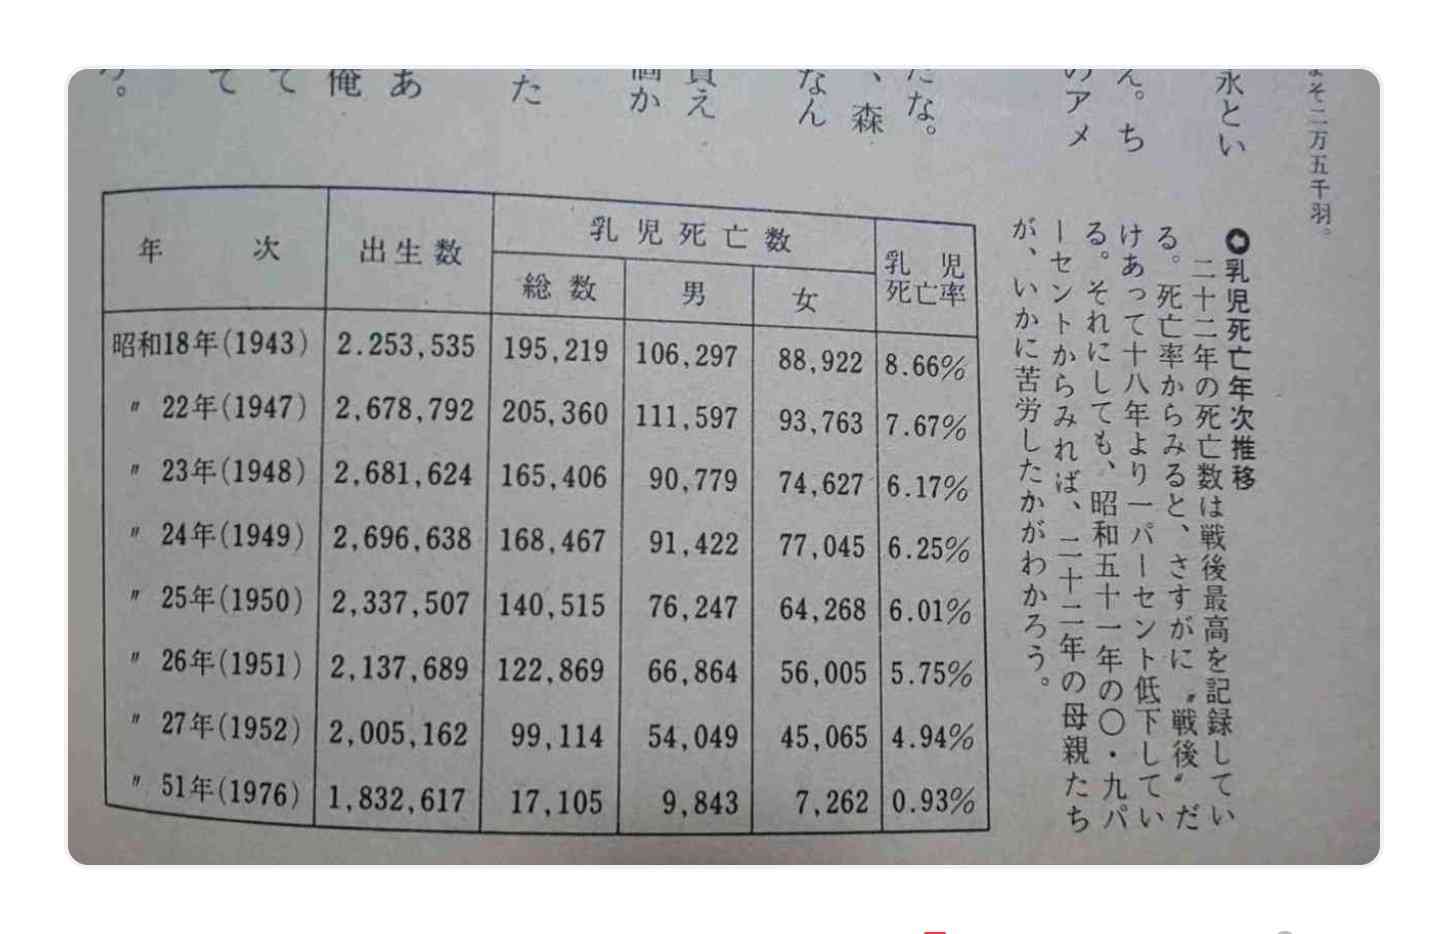 よそ二万五千羽。
永とい
え。ち
のアメ
だな。
、森
なん
買え
個か
た
あ
俺
て
て
う。
乳児死亡年次推移
二十二年の死亡数は戦後最高を記録してい
る。死亡率からみると、さすがに〝戦後〟だ
けあって十八年より一パーセント低下してい
る。それにしても、昭和五十一年の〇・九パ
ーセントからみれば、二十二年の母親たち
が、いかに苦労したかがわかろう。
年次 出生数 乳児死亡数 乳児死亡率
総数 男 女
昭和18年(1943) 2.253,535 195,219 106,297 88,922 8.66%
〃 22年(1947) 2,678,792 205,360 111,597 93,763 7.67%
〃 23年(1948) 2,681,624 165,406 90,779 74,627 6.17%
〃 24年(1949) 2,696,638 168,467 91,422 77,045 6.25%
〃 25年(1950) 2,337,507 140,515 76,247 64,268 6.01%
〃 26年(1951) 2,137,689 122,869 66,864 56,005 5.75%
〃 27年(1952) 2,005,162 99,114 54,049 45,065 4.94%
〃 51年(1976) 1,832,617 17,105 9,843 7,262 0.93%